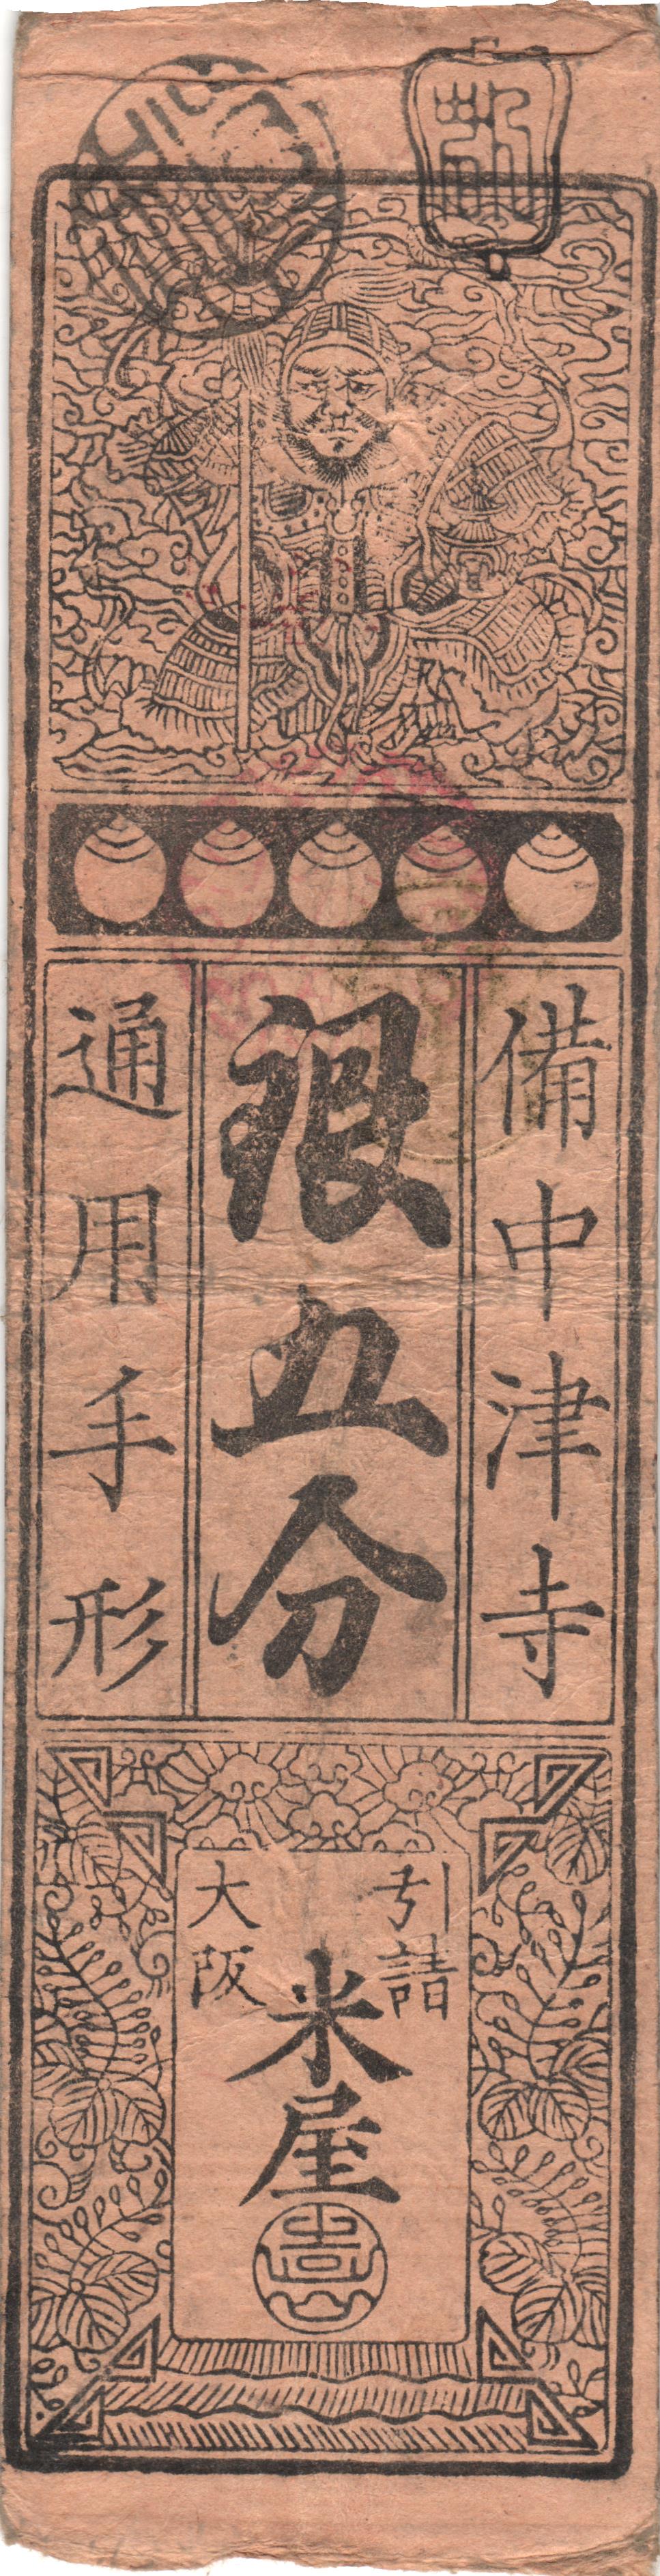 備中津寺
銀五分
通用手形
引請
米屋
大阪